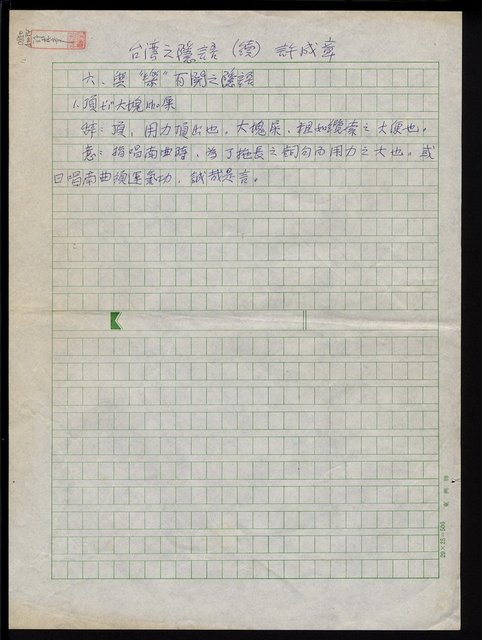 台湾之隱語 (續) 許成章
六、與“樂”有關之隱語
1.頂出大塊如屎
辞：頂，用力頂出也。大塊屎，粗如纜索之大便也。
意：指唱南曲時，為了拖長之詞句而用力之大也。或
曰唱南曲須運氣功，誠哉是言。
20×25=500